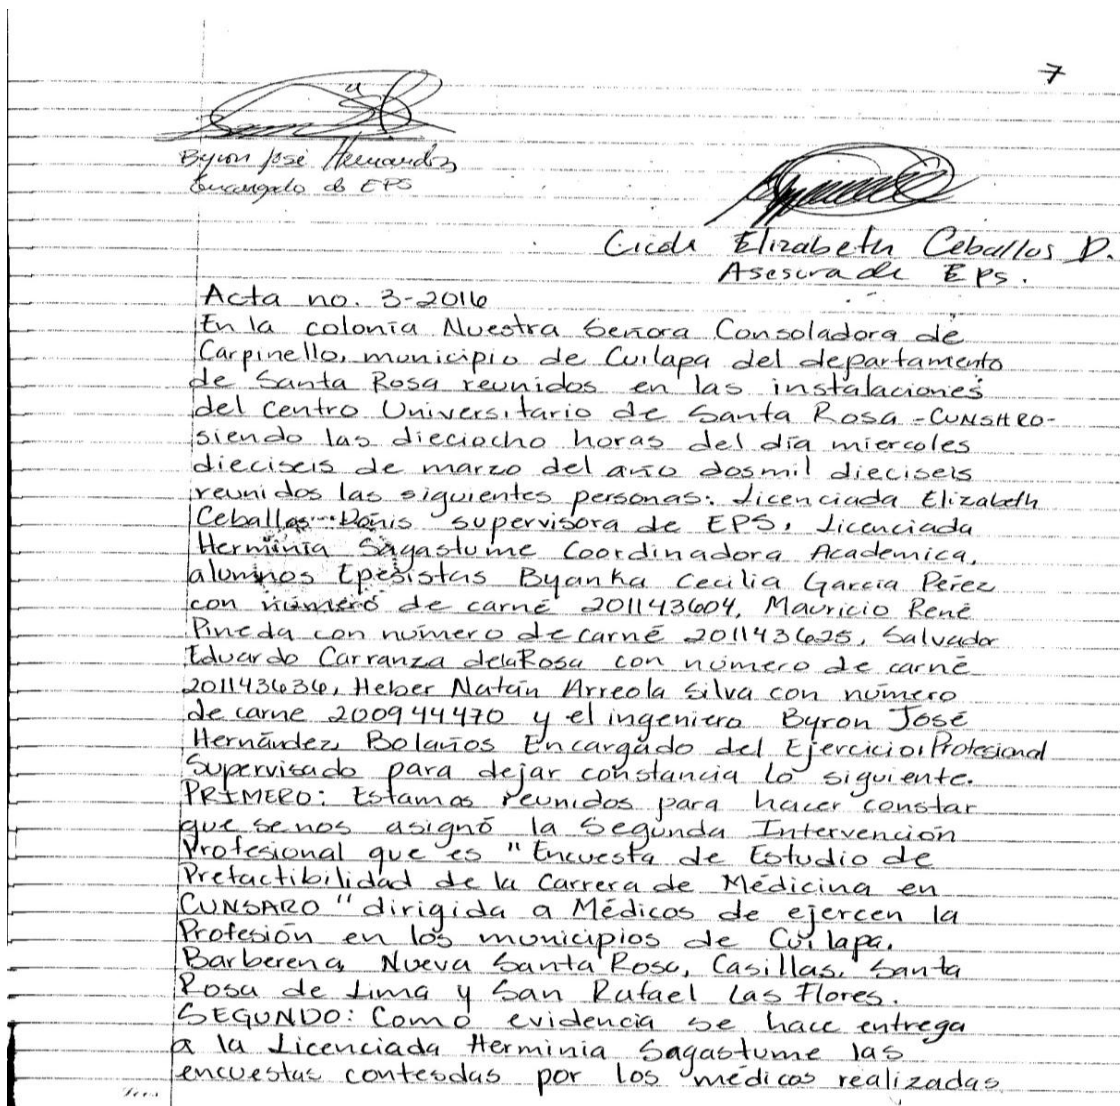 7
Byron José Hernández
Encargado de EPS
Licda Elizabeth Ceballos D.
Asesora de EPS.
Acta no. 3-2016
En la colonia Nuestra Señora Consoladora de
Carpinello, municipio de Cuilapa del departamento
de Santa Rosa reunidos en las instalaciones
del Centro Universitario de Santa Rosa -CUNSARO-
siendo las dieciocho horas del día miercoles
dieciseis de marzo del año dosmil dieciseis
reunidos las siguientes personas: Licenciada Elizabeth
Ceballos Donis supervisora de EPS, Licenciada
Herminia Sagastume Coordinadora Academica,
alumnos Epesistas Byanka Cecilia Garcia Pérez
con número de carné 201143604, Mauricio René
Pineda con número de carné 201143625, Salvador
Eduardo Carranza delaRosa con número de carné
201143636, Heber Natán Arreola Silva con número
de carne 200944470 y el ingeniero Byron José
Hernández Bolaños Encargado del Ejercicio Profesional
Supervisado para dejar constancia lo siguiente.
PRIMERO: Estamos reunidos para hacer constar
que se nos asignó la Segunda Intervención
Profesional que es "Encuesta de Estudio de
Prefactibilidad de la Carrera de Médicina en
CUNSARO" dirigida a Médicos de ejercen la
Profesión en los municipios de Cuilapa,
Barberena, Nueva Santa Rosa, Casillas, Santa
Rosa de Lima y San Rafael Las Flores.
SEGUNDO: Como evidencia se hace entrega
a la Licenciada Herminia Sagastume las
encuestas contesdas por los médicos realizadas